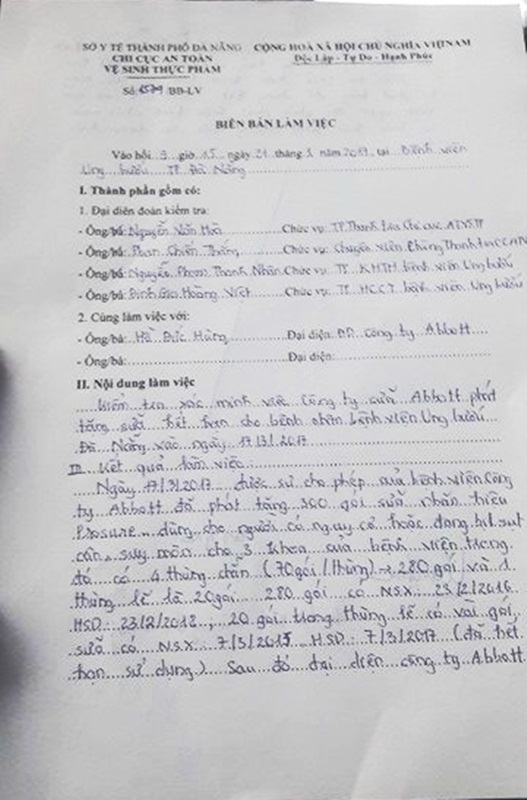 SỞ Y TẾ THÀNH PHỐ ĐÀ NẴNG CỘNG HOÀ XÃ HỘI CHỦ NGHĨA VIỆT NAM
CHI CỤC AN TOÀN Độc Lập - Tự Do - Hạnh Phúc
VỆ SINH THỰC PHẨM
Số: /BB-LV
BIÊN BẢN LÀM VIỆC
Vào hồi 9 giờ 15 ngày 21 tháng 3 năm 2017, tại Bệnh viện
Ung bướu TP Đà Nẵng
I. Thành phần gồm có:
1. Đại diện đoàn kiểm tra:
- Ông/bà: Nguyễn Văn Hoà Chức vụ: TP Thanh tra Chi cục ATVSTP
- Ông/bà: Phan Chiến Thắng Chức vụ: Chuyên viên phòng Thanh tra CCATVSTP
- Ông/bà: Nguyễn Phạm Thanh Nhân Chức vụ: TP KHTH bệnh viện Ung bướu
- Ông/bà: Đinh Gia Hoàng Việt Chức vụ: TP HCCT bệnh viện Ung bướu
2. Cùng làm việc với:
- Ông/bà: Hồ Đức Hùng Đại diện: công ty Abbott
- Ông/bà: Đại diện:
II. Nội dung làm việc
Kiểm tra xác minh việc Công ty sữa Abbott phát
tặng sữa hết hạn cho bệnh nhân bệnh viện Ung bướu
Đà Nẵng vào ngày 17/3/2017
III. Kết quả làm việc:
Ngày 17/3/2017 được sự cho phép của bệnh viện Công
ty Abbott đã phát tặng 300 gói sữa nhãn hiệu
Prosure dùng cho người có nguy cơ hoặc đang bị sụt
cân, suy mòn cho 3 khoa của bệnh viện trong
đó có 4 thùng chẵn (70 gói/thùng) → 280 gói và 1
thùng lẻ là 20 gói. 280 gói có NSX: 23/2/2016
HSD: 23/2/2018, 20 gói trong thùng lẻ có vài gói
sữa có NSX: 7/3/2015 HSD: 7/3/2017 (đã hết
hạn sử dụng). Sau đó đại diện công ty Abbott